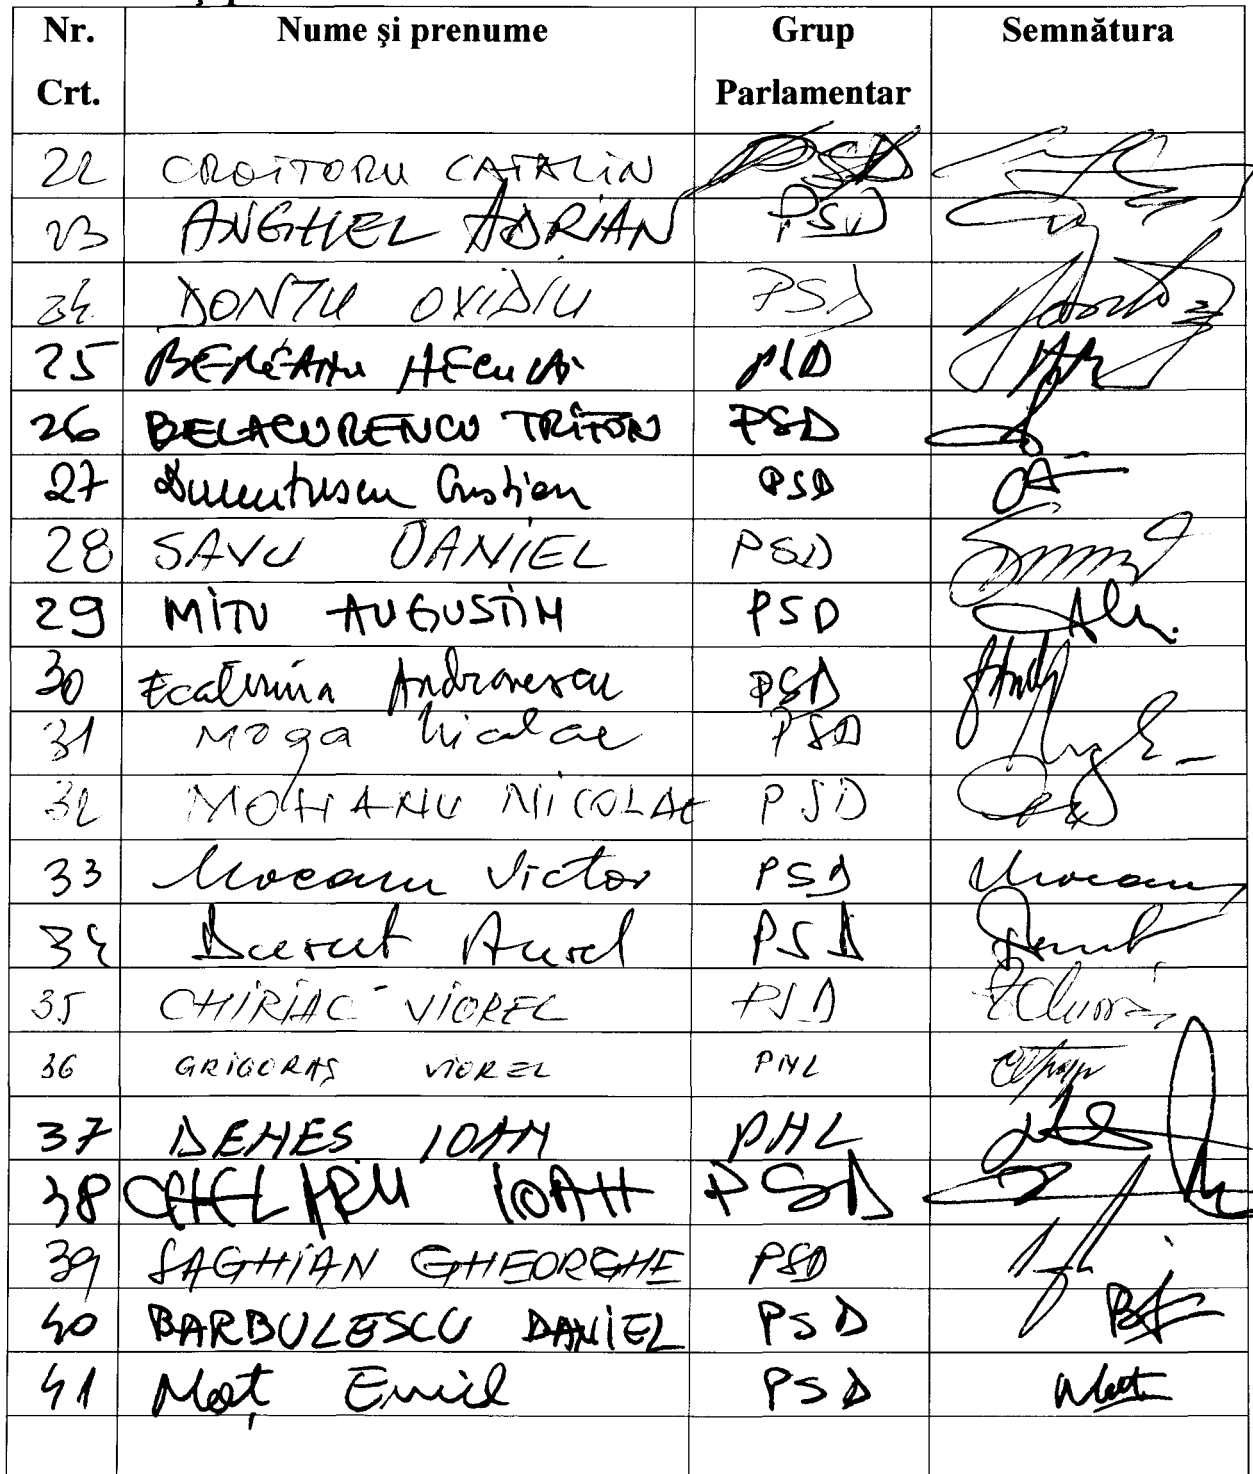 Nr. Crt. Nume și prenume Grup Parlamentar Semnătura
22 CROITORU CATALIN PSD
23 ANGHEL ADRIAN PSD
24 DONTU OVIDIU PSD
25 PSD
26 BELACURENCU TRIFON PSD
27 Dumitrescu Cristian PSD
28 SAVU DANIEL PSD
29 MITU AUGUSTIN PSD
30 Ecaterina Andronescu PSD
31 Moga Nicolae PSD
32 MOHANU NICOLAE PSD
33 Mocanu Victor PSD Mocanu
34 Aurel PSD
35 CHIRIAC VIOREL PSD
36 GRIGORAS VIOREL PNL
37 DENES IOAN PNL
38 CHELARU IOAN PSD
39 SAGHIAN GHEORGHE PSD
40 BARBULESCU DANIEL PSD
41 Moț Emil PSD